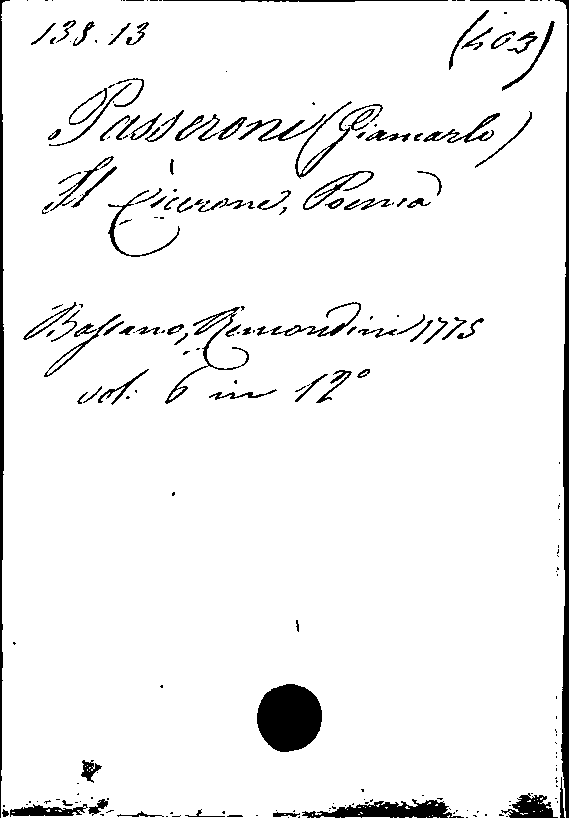 138.13 (403)
Passeroni (Giancarlo)
Il Cicerone, Poema
Bassano, Remondini 1775
vol: 6 in 12°